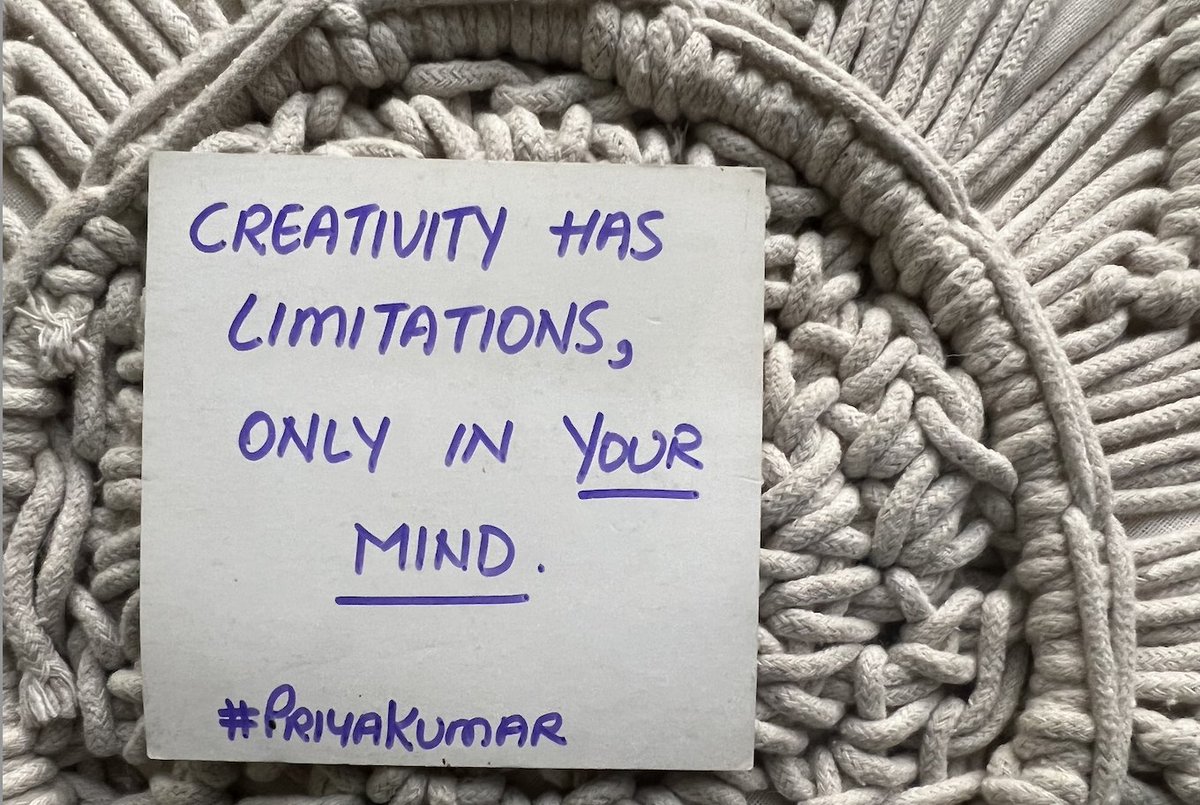 CREATIVITY HAS
LIMITATIONS,
ONLY IN YOUR
MIND.
#PRIYAKUMAR